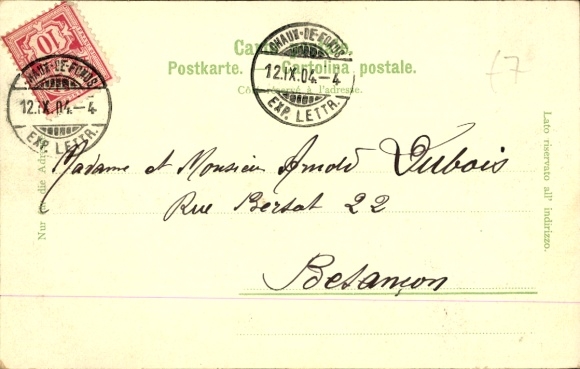 10
CHAUX-DE-FONDS
12.IX.04.-4
EXP. LETTR.
CHAUX-DE-FONDS
12.IX.04.-4
EXP. LETTR.
Postkarte. Cartolina postale.
Côté réservé à l'adresse.
£7
Nur für die Adresse
Madame et Monsieur Arnold Dubois
Rue Bersot 22
Besançon
Lato riservato all' indirizzo.